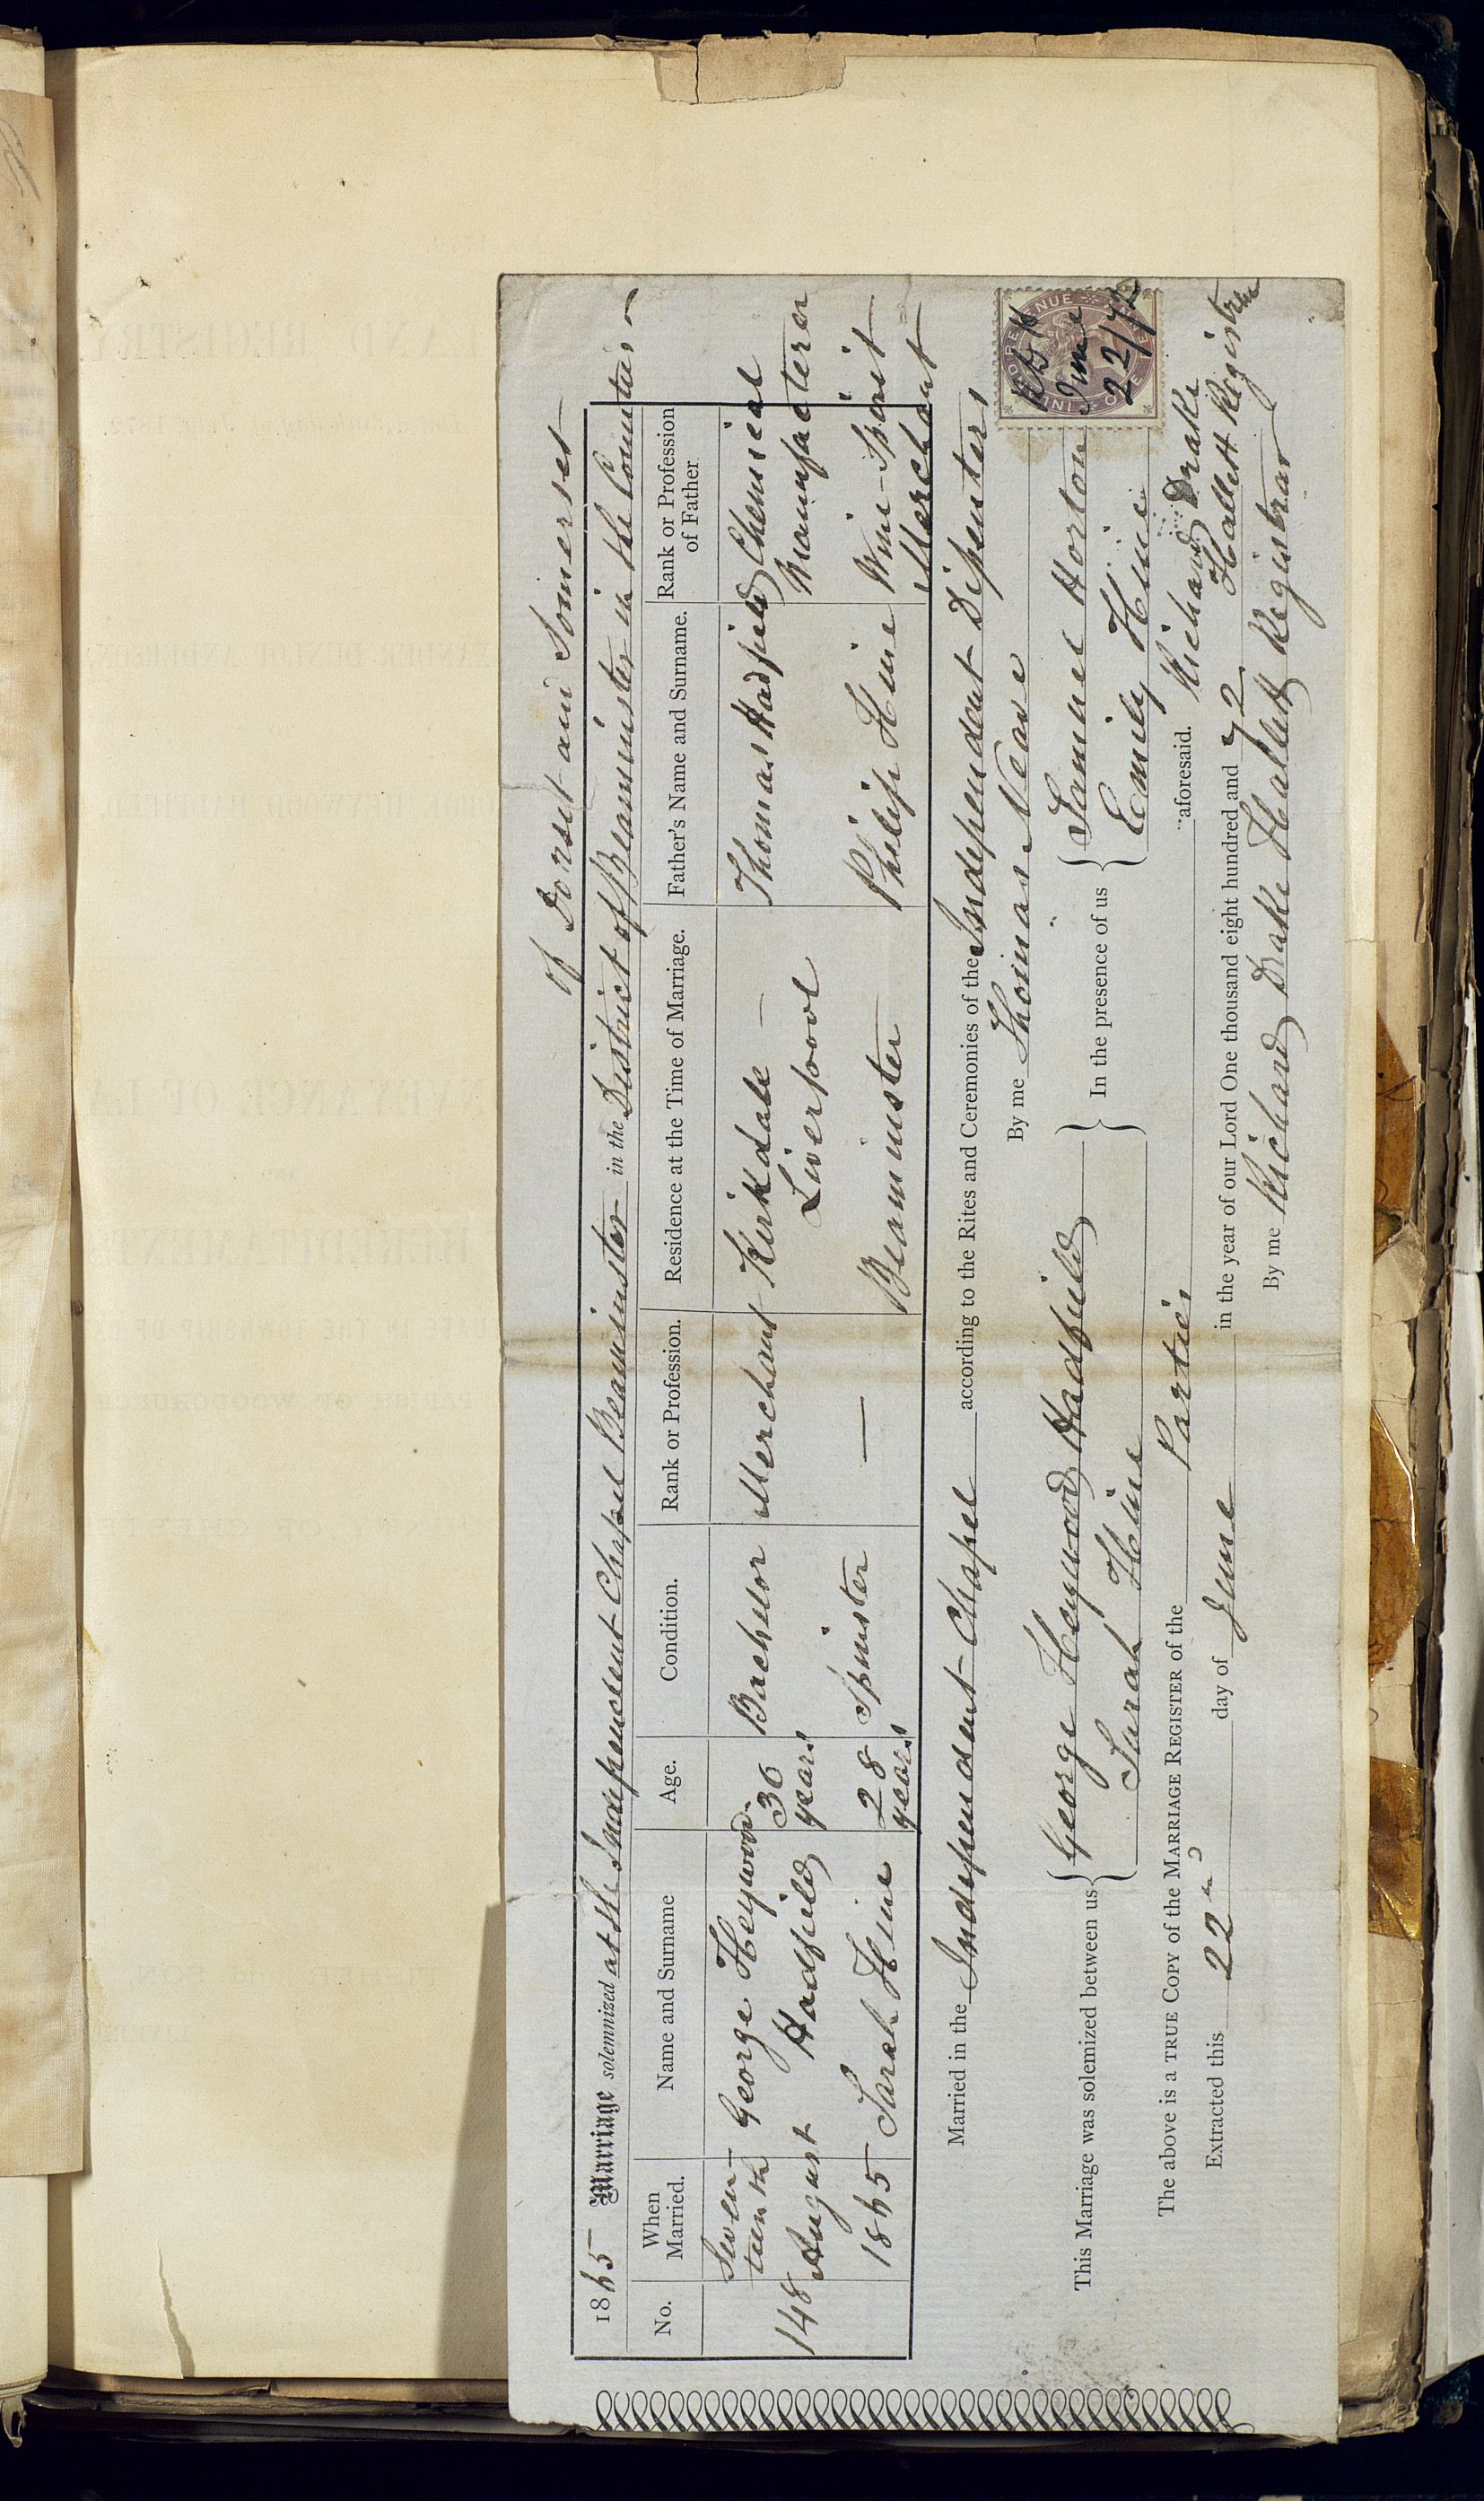 of Dorset and Somerset
1865 Marriage solemnized at the Independent Chapel Beaminster in the District of Beaminster in the Counties
No.
When Married.
Name and Surname
Age.
Condition.
Rank or Profession.
Residence at the Time of Marriage.
Father's Name and Surname.
Rank or Profession of Father
148
Seven-
teenth
August
1865
George Heywood
Hadfield
36
years
Bachelor
Merchant
Kirkdale
Liverpool
Thomas Hadfield
Chemical
Manufacterer
Sarah Hine
28
years
Spinster
—
Beaminster
Philip Hine
Wine-Spirit
Merchant
Married in the Independent Chapel according to the Rites and Ceremonies of the Independent Dissenters
By me Thomas Neave
This Marriage was solemized between us { George Heywood Hadfield } In the presence of us { Samuel Horton
Sarah Hine
Emily Hine
The above is a TRUE COPY of the MARRIAGE REGISTER of the Parties aforesaid. Richard Drake
Hallett Registrar
Extracted this 22nd day of June in the year of our Lord One thousand eight hundred and 72
By me Richard Drake Hallett Registrar
INLAND REVENUE
ONE PENNY
RDH
June
22/72